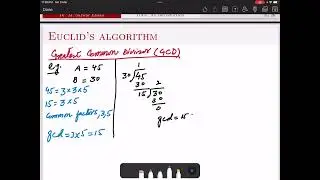 EUCLID'S ALGORITHM
Greatest Common Divisor (GCD)
eg: A = 45
B = 30
45 = 3×3×5
15 = 3×5
Common factors, 3,5
gcd = 3×5 = 15
1
30)45
30 2
15)30
30
0
gcd = 15